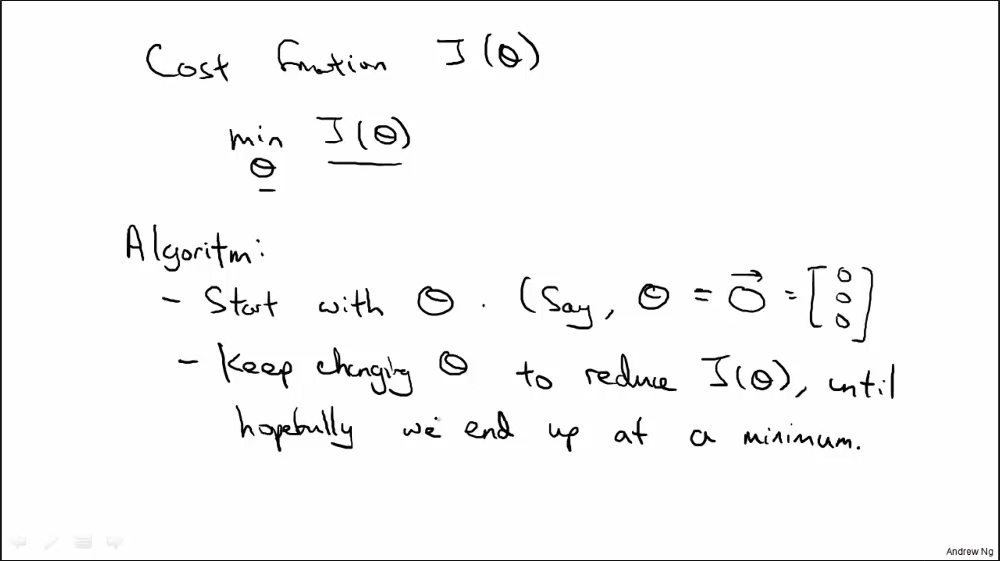 Cost Function J(θ)
min J(θ)
θ
Algoritm:
- Start with θ. (Say, θ = 0⃗ = [0 0 0]
- Keep changing θ to reduce J(θ), until
hopefully we end up at a minimum.
Andrew Ng